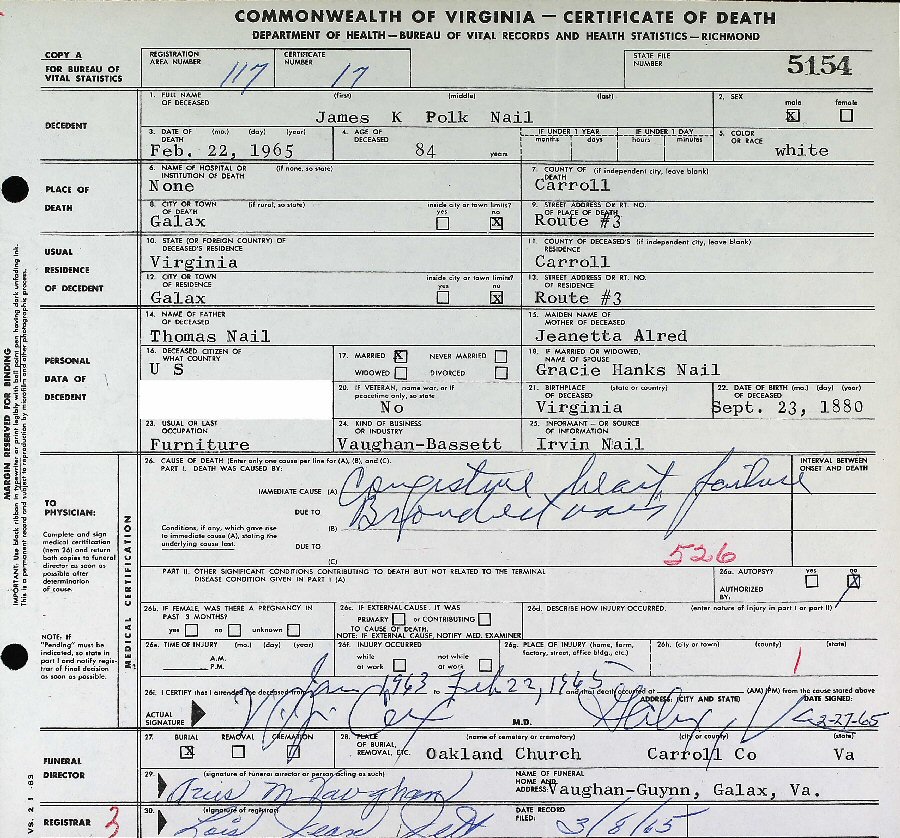 COMMONWEALTH OF VIRGINIA — CERTIFICATE OF DEATH
DEPARTMENT OF HEALTH — BUREAU OF VITAL RECORDS AND HEALTH STATISTICS — RICHMOND
COPY A
FOR BUREAU OF VITAL STATISTICS
REGISTRATION AREA NUMBER 117
CERTIFICATE NUMBER 17
STATE FILE NUMBER 5154
DECEDENT
1. FULL NAME OF DECEASED (first) (middle) (last)
James K Polk Nail
2. SEX male ☒ female ☐
3. DATE OF DEATH (mo.) (day) (year)
Feb. 22, 1965
4. AGE OF DECEASED 84 years
IF UNDER 1 YEAR months days
IF UNDER 1 DAY hours minutes
5. COLOR OR RACE white
PLACE OF DEATH
6. NAME OF HOSPITAL OR INSTITUTION OF DEATH (if none, so state)
None
7. COUNTY OF DEATH (if independent city, leave blank)
Carroll
8. CITY OR TOWN OF DEATH (if rural, so state) inside city or town limits? yes ☐ no ☒
Galax
9. STREET ADDRESS OR RT. NO. OF PLACE OF DEATH
Route #3
USUAL RESIDENCE OF DECEDENT
10. STATE (OR FOREIGN COUNTRY) OF DECEASED'S RESIDENCE
Virginia
11. COUNTY OF DECEASED'S RESIDENCE (if independent city, leave blank)
Carroll
12. CITY OR TOWN OF RESIDENCE inside city or town limits? yes ☐ no ☒
Galax
13. STREET ADDRESS OR RT. NO. OF RESIDENCE
Route #3
PERSONAL DATA OF DECEDENT
14. NAME OF FATHER OF DECEASED
Thomas Nail
15. MAIDEN NAME OF MOTHER OF DECEASED
Jeanetta Alred
16. DECEASED CITIZEN OF WHAT COUNTRY
U S
17. MARRIED ☒ NEVER MARRIED ☐
WIDOWED ☐ DIVORCED ☐
18. IF MARRIED OR WIDOWED, NAME OF SPOUSE
Gracie Hanks Nail
20. IF VETERAN, name war, or if peacetime only, so state
No
21. BIRTHPLACE OF DECEASED (state or country)
Virginia
22. DATE OF BIRTH (mo.) (day) (year) OF DECEASED
Sept. 23, 1880
23. USUAL OR LAST OCCUPATION
Furniture
24. KIND OF BUSINESS OR INDUSTRY
Vaughan-Bassett
25. INFORMANT - OR SOURCE OF INFORMATION
Irvin Nail
TO PHYSICIAN:
Complete and sign medical certification (item 26) and return both copies to funeral director as soon as possible after determination of cause.
NOTE: If "Pending" must be indicated, so state in part I and notify registrar of final decision as soon as possible.
MEDICAL CERTIFICATION
26. CAUSE OF DEATH (Enter only one cause per line for (A), (B), and (C).
PART I. DEATH WAS CAUSED BY:
INTERVAL BETWEEN ONSET AND DEATH
IMMEDIATE CAUSE (A) Congestive heart failure
DUE TO
(B)
Conditions, if any, which gave rise to immediate cause (A), stating the underlying cause last.
DUE TO
(C)
526
PART II. OTHER SIGNIFICANT CONDITIONS CONTRIBUTING TO DEATH BUT NOT RELATED TO THE TERMINAL DISEASE CONDITION GIVEN IN PART I (A)
26a. AUTOPSY? yes ☐ no ☒
AUTHORIZED BY:
26b. IF FEMALE, WAS THERE A PREGNANCY IN PAST 3 MONTHS?
yes ☐ no ☐ unknown ☐
26c. IF EXTERNAL CAUSE, IT WAS
PRIMARY ☐ or CONTRIBUTING ☐
TO CAUSE OF DEATH.
NOTE: IF EXTERNAL CAUSE, NOTIFY MED. EXAMINER
26d. DESCRIBE HOW INJURY OCCURRED. (enter nature of injury in part I or part II)
26e. TIME OF INJURY (mo.) (day) (year)
A.M.
P.M.
26f. INJURY OCCURRED
while at work ☐ not while at work ☐
26g. PLACE OF INJURY (home, farm, factory, street, office bldg., etc.)
26h. (city or town) (county) (state)
26i. I CERTIFY that I attended the deceased from Jan 1963 to Feb 22, 1965 and that death occurred at (AM) (PM) from the cause stated above
ACTUAL SIGNATURE Cox M.D.
ADDRESS: (CITY AND STATE) Galax, Va
DATE SIGNED: 2-27-65
FUNERAL DIRECTOR
27. BURIAL ☒ REMOVAL ☐ CREMATION ☐
28. PLACE OF BURIAL, REMOVAL, ETC. (name of cemetery or crematory) (city or county) (state)
Oakland Church Carroll Co Va
29. (signature of funeral director or person acting as such)
M Vaughan
NAME OF FUNERAL HOME AND ADDRESS: Vaughan-Guynn, Galax, Va.
REGISTRAR 3
30. (signature of registrar)
Lois Jean
DATE RECORD FILED: 3/8/65
MARGIN RESERVED FOR BINDING
IMPORTANT: Use black ribbon in typewriter or print legibly with ball point pen having dark unfading ink.
This is a permanent record and subject to reproduction by microfilm and other photographic process.
VS. 2 1-63